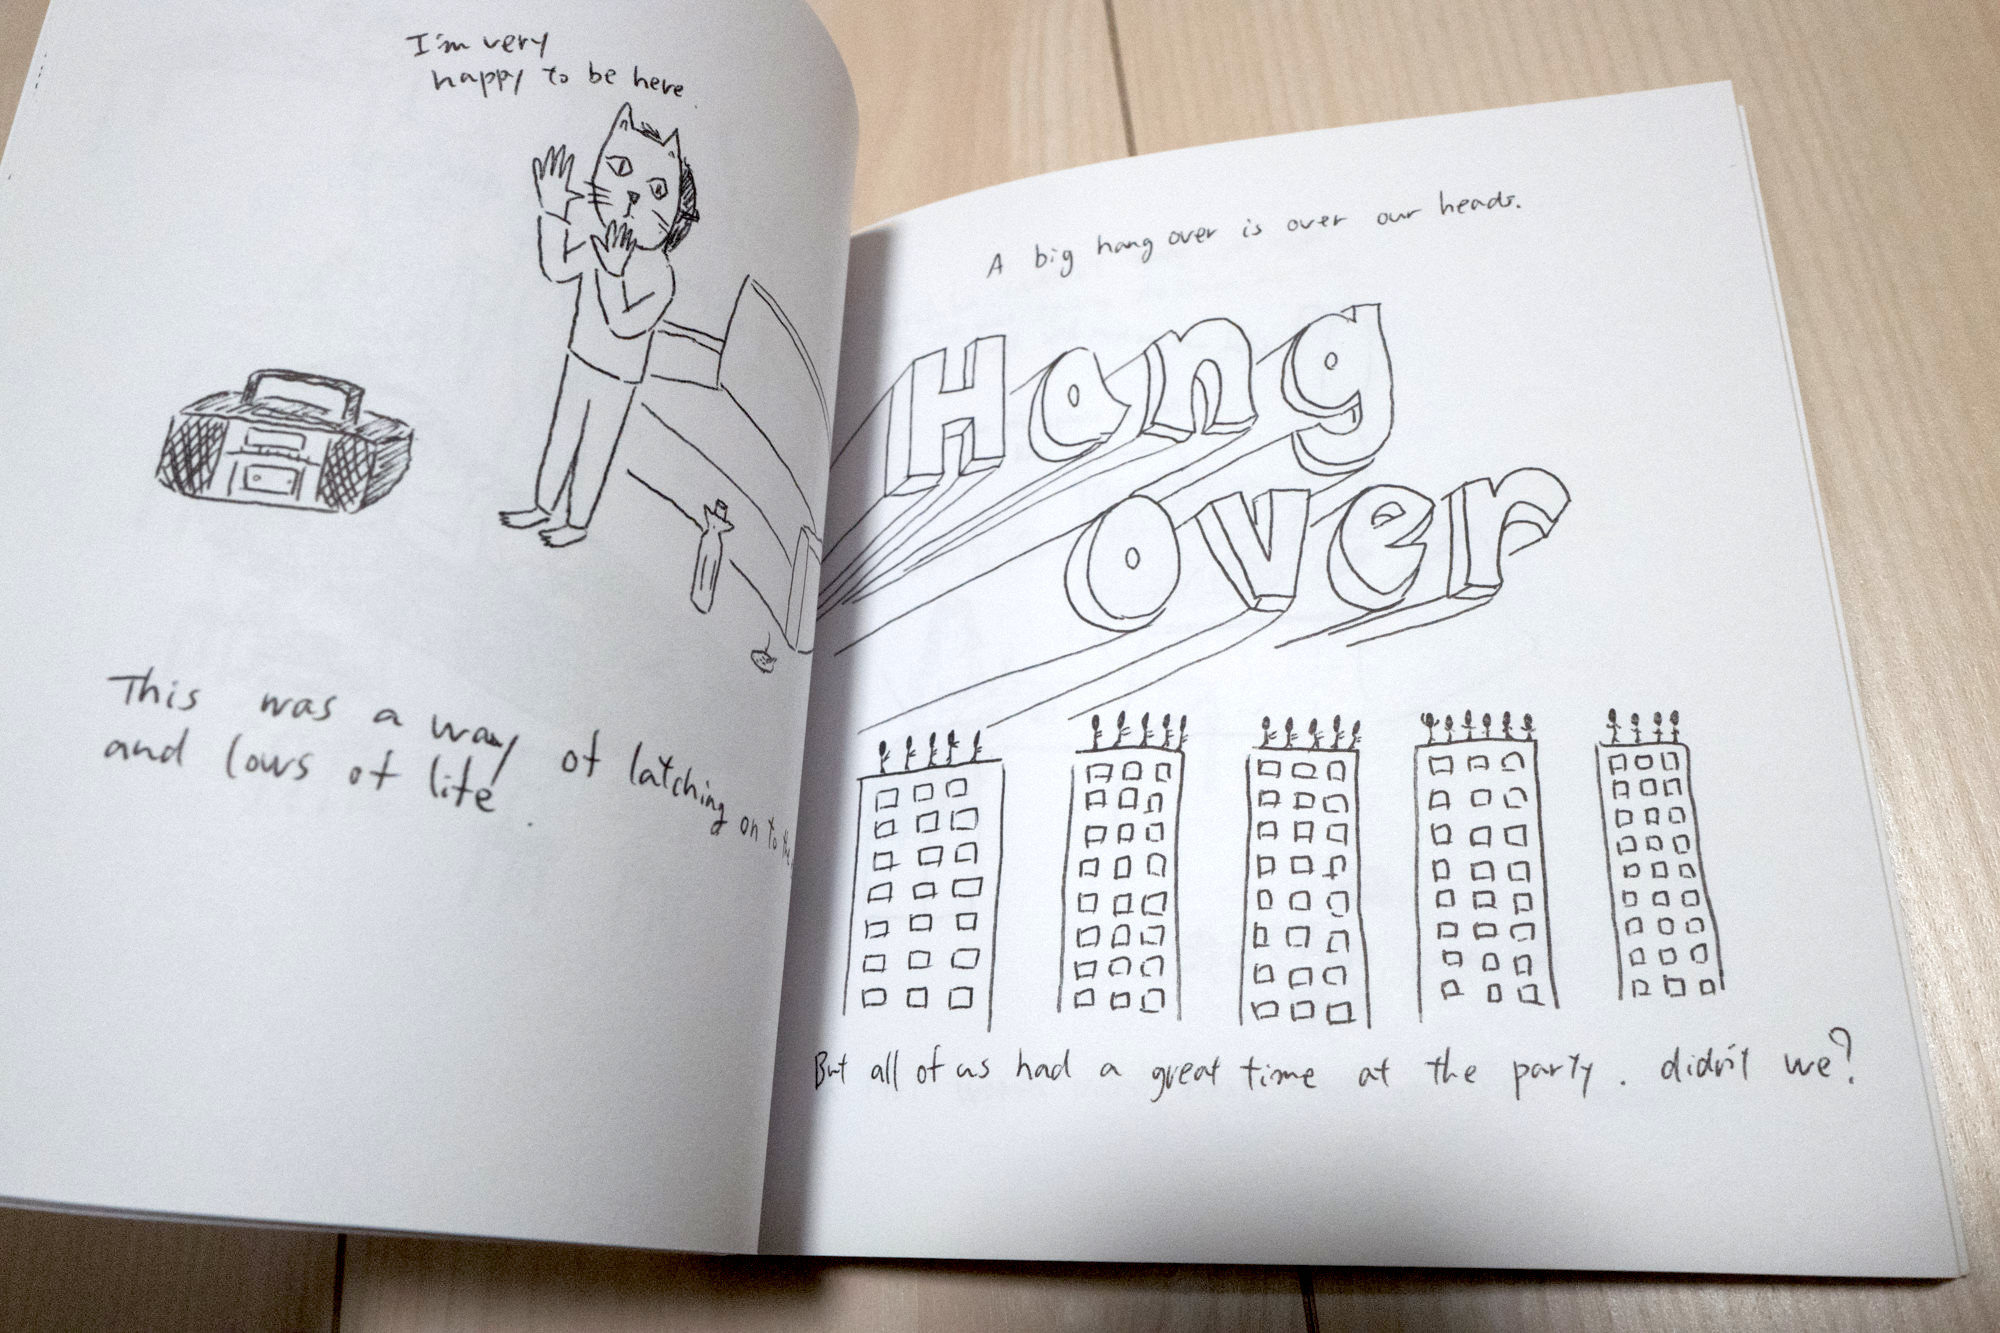 I'm very
happy to be here.
This was a way of latching on to the
and lows of life.
A big hang over is over our heads.
Hang
Over
But all of us had a great time at the party. didn't we?